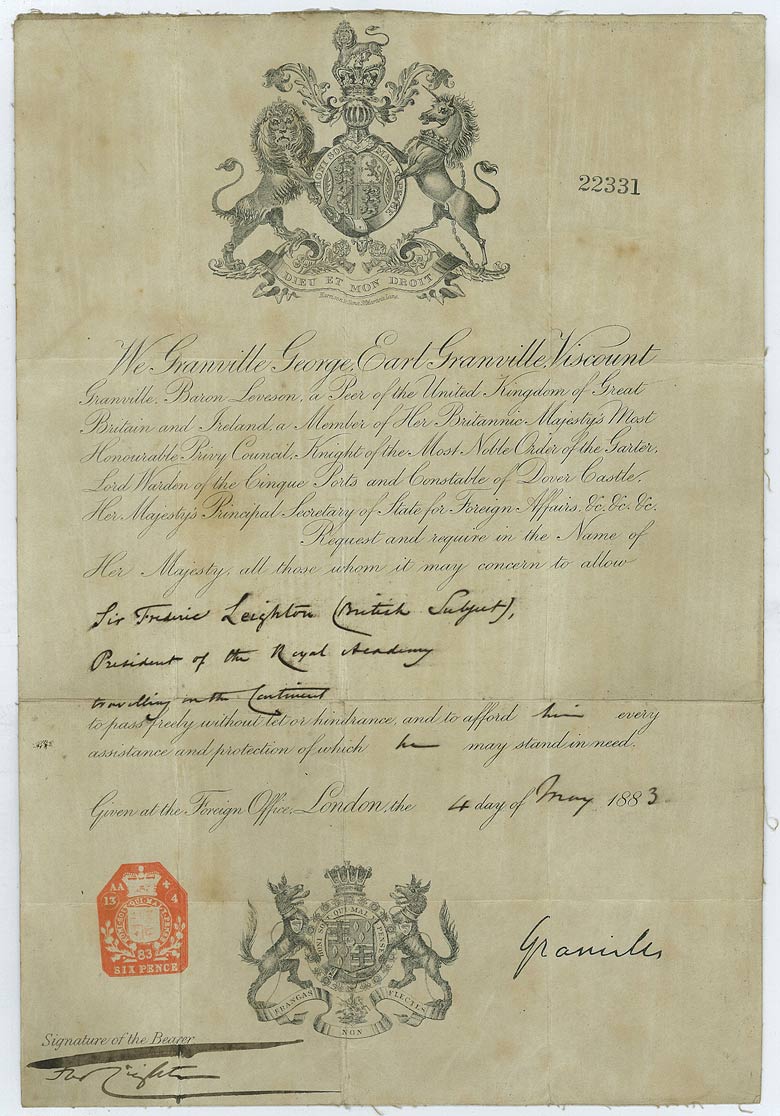 HONI SOIT QUI MAL Y PENSE
22331
DIEU ET MON DROIT
We Granville George, Earl Granville, Viscount
Granville, Baron Leveson, a Peer of the United Kingdom of Great
Britain and Ireland, a Member of Her Britannic Majesty's Most
Honourable Privy Council, Knight of the Most Noble Order of the Garter,
Lord Warden of the Cinque Ports and Constable of Dover Castle,
Her Majesty's Principal Secretary of State for Foreign Affairs, &c. &c. &c.
Request and require in the Name of
Her Majesty, all those whom it may concern to allow
Sir Frederic Leighton (British Subject),
President of the Royal Academy
travelling on the Continent
to pass freely without let or hindrance, and to afford him every
assistance and protection of which he may stand in need.
Given at the Foreign Office, London, the 4 day of May 1883
AA
13 4
HONI SOIT QUI MAL Y PENSE
83
SIX PENCE
HONI SOIT QUI MAL Y PENSE
FRANGAS NON FLECTES
Granville
Signature of the Bearer
Fred Leighton